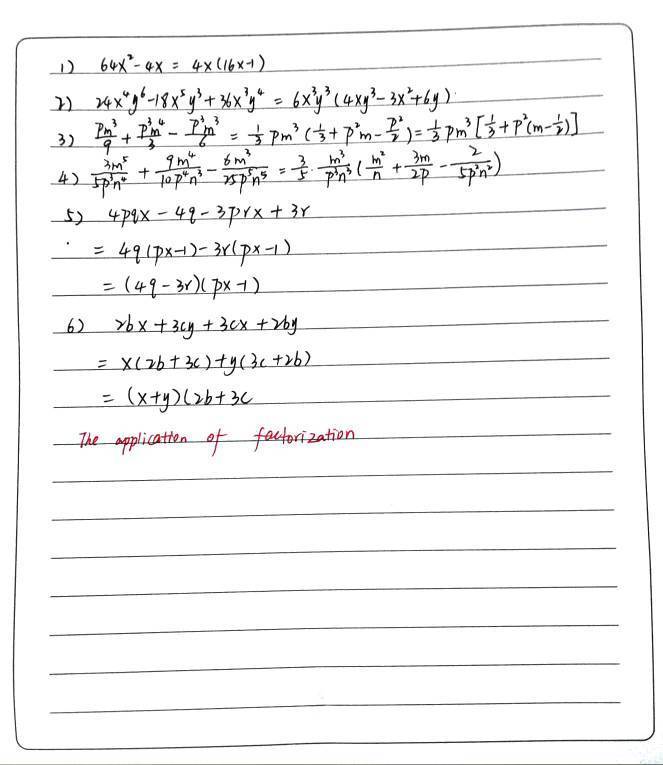 1) 64x²-4x = 4x(16x-1)
2) 24x⁴y⁶-18x⁵y³+36x³y⁴ = 6x³y³(4xy³-3x²+6y)
3) pm³/9 + p³m⁴/3 - p³m³/6 = 1/3 pm³(1/3+p²m-p²/2) = 1/3 pm³[1/3+p²(m-1/2)]
4) 3m⁵/5p³n⁴ + 9m⁴/10p⁴n³ - 6m³/25p⁵n⁵ = 3/5 · m³/p³n³(m²/n + 3m/2p - 2/5p²n²)
5) 4pqx-4q-3prx+3r
= 4q(px-1)-3r(px-1)
= (4q-3r)(px-1)
6) 2bx+3cy+3cx+2by
= x(2b+3c)+y(3c+2b)
= (x+y)(2b+3c
The application of factorization